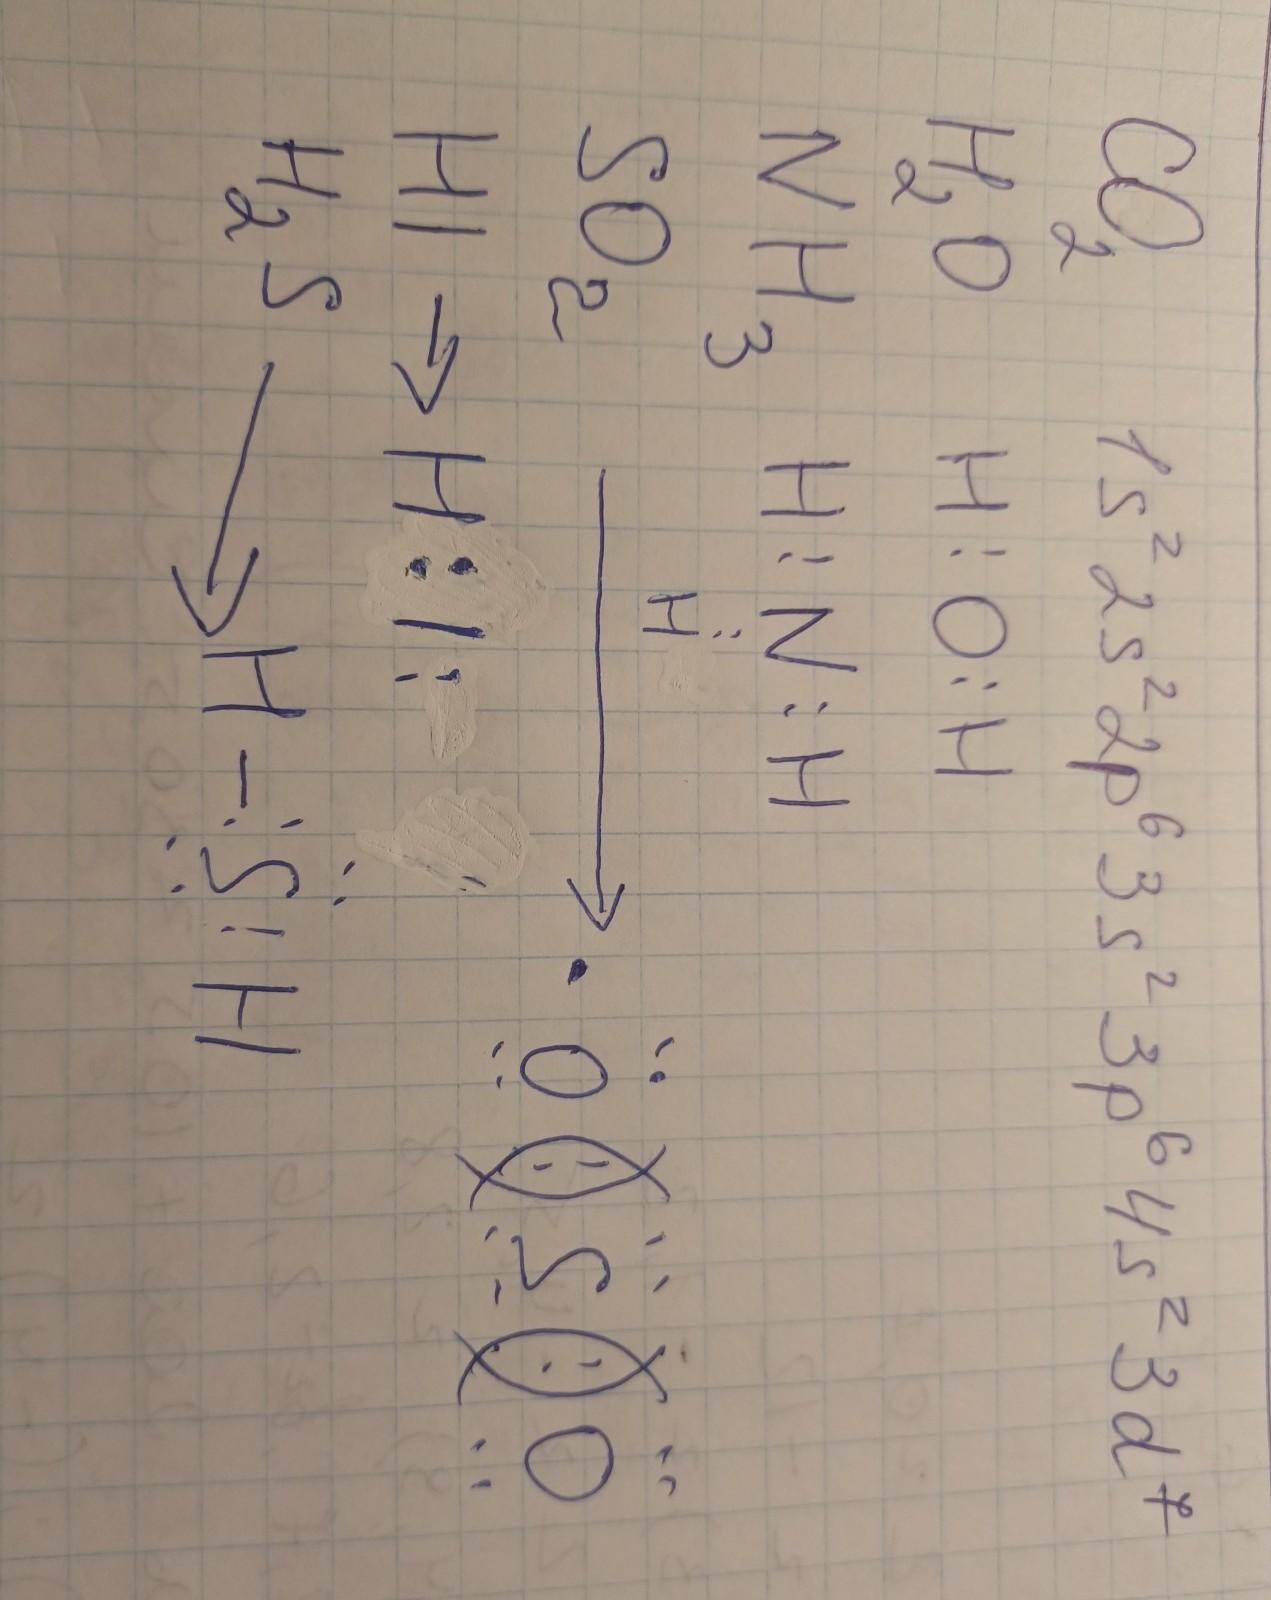 CO₂ 1s² 2s² 2p⁶ 3s² 3p⁶ 4s² 3d⁷
H₂O H:O:H
NH₃ H:N:H
H
SO₂ → O S O
HI → H:I:
H₂S → H-S:H